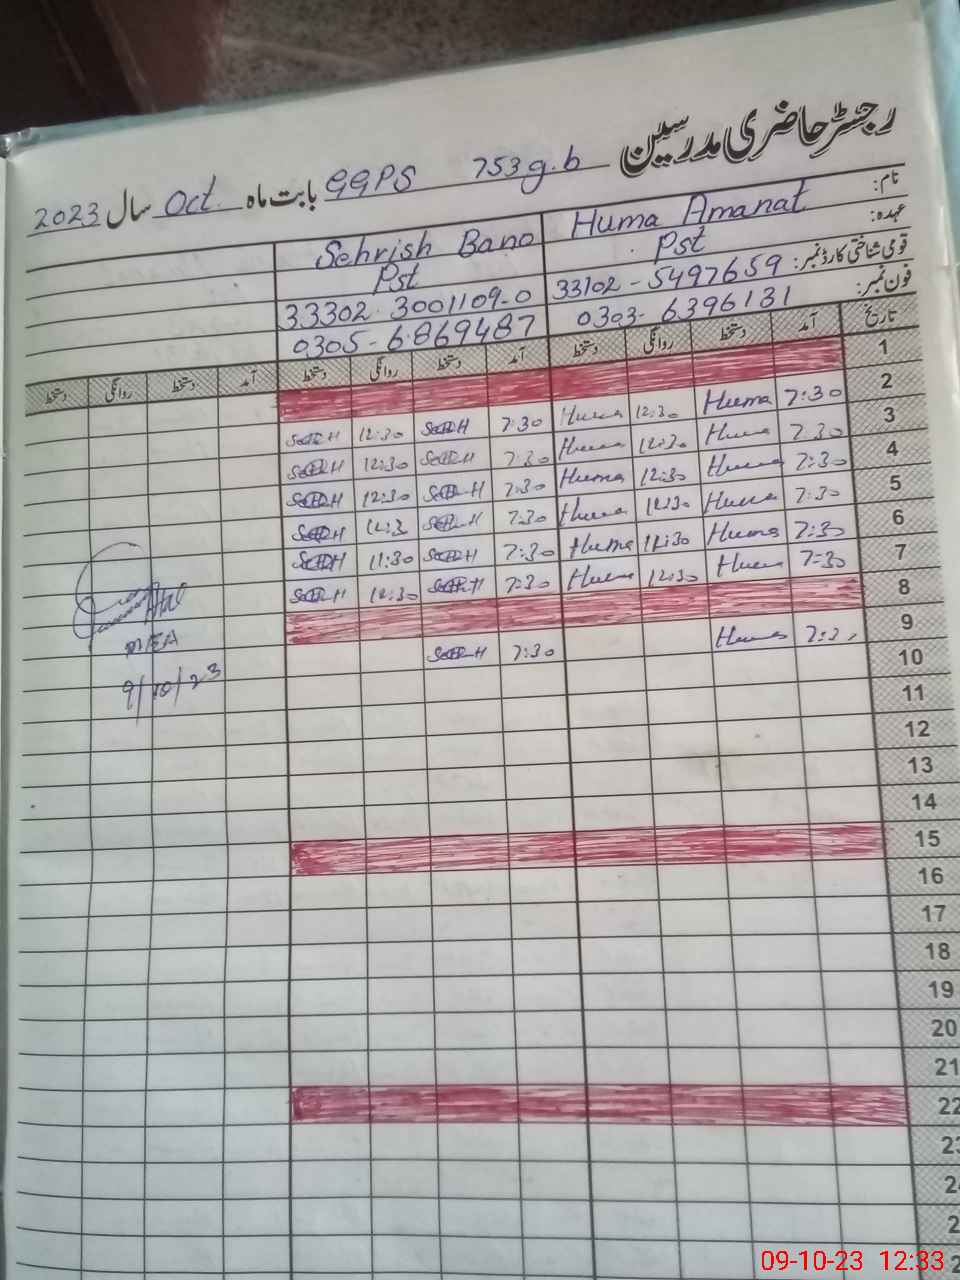 رجسٹر حاضری مدرسین 753 g.b GGPS بابت ماہ Oct. سال 2023
نام: Huma Amanat Sehrish Bano
عہدہ: Pst Pst
قومی شناختی کارڈ نمبر: 33102-5497659 33302-3001109-0
فون نمبر: 0303-6396131 0305-6869487
تاریخ آمد دستخط روانگی دستخط آمد دستخط روانگی دستخط آمد دستخط روانگی دستخط
1
2 7:30 Huma 12:30 Huma 7:30 12:30
3 7:30 Huma 12:30 Huma 7:30 12:30
4 7:30 Huma 12:30 Huma 7:30 12:30
5 7:30 Huma 12:30 Huma 7:30 12:3
6 7:30 Huma 11:30 Huma 7:30 11:30
7 7:30 Huma 12:30 Huma 7:30 12:30
8
9 Huma 7:30
10
11
12
13
14
15
16
17
18
19
20
21
22
23
MEA
9/10/23
09-10-23 12:33